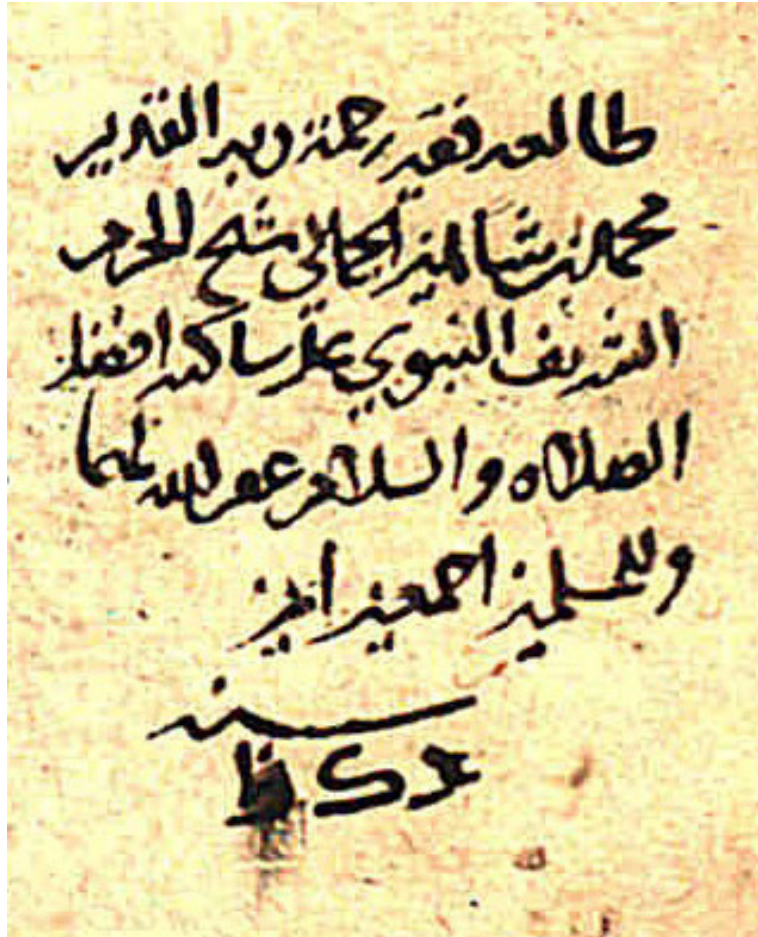 طالعه فقير رحمة ربه القدير
محمد بن شاهين الجمالي شيخ الحرم
الشريف النبوي على ساكنه افضل
الصلاه والسلام غفر الله لهما
وللمسلمين اجمعين امين
سنه